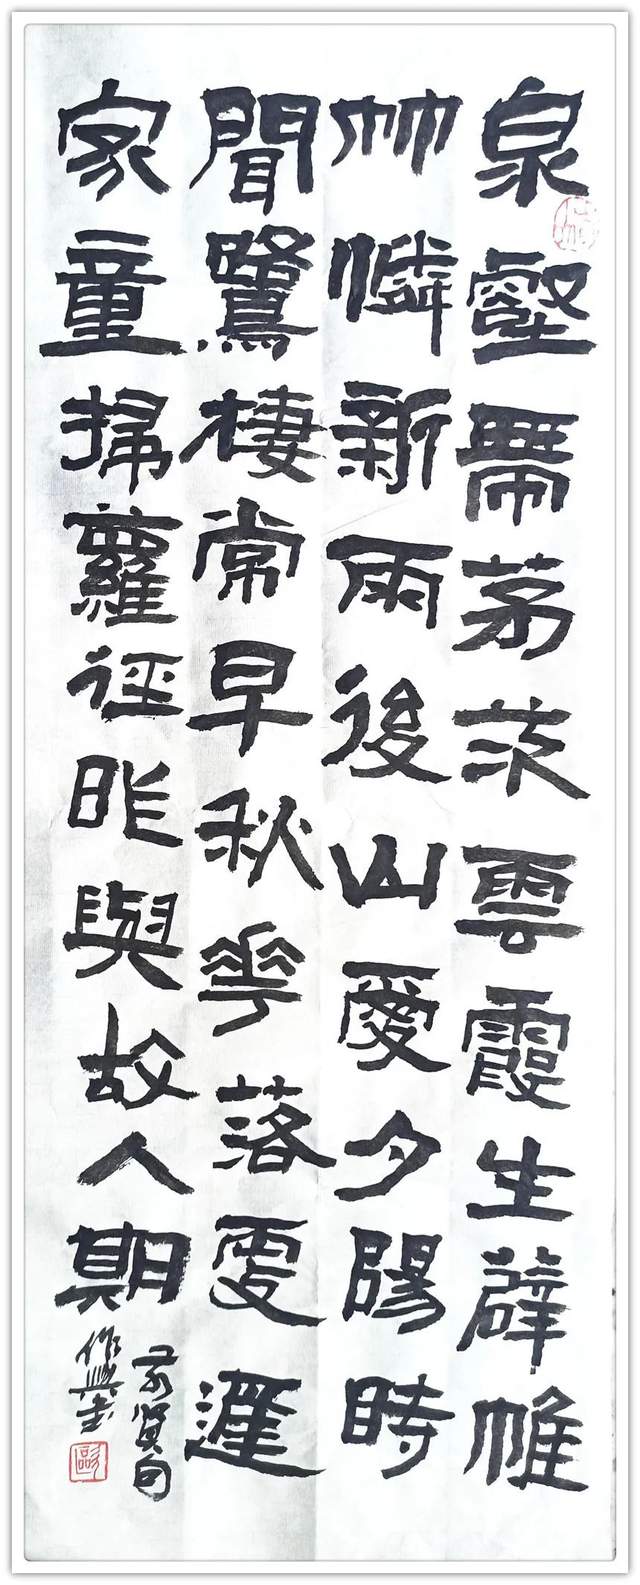 泉壑帶茅茨雲霞生薜帷
竹憐新雨後山愛夕陽時
閒鷺棲常早秋花落更遲
家童掃蘿徑昨與故人期
前賢句